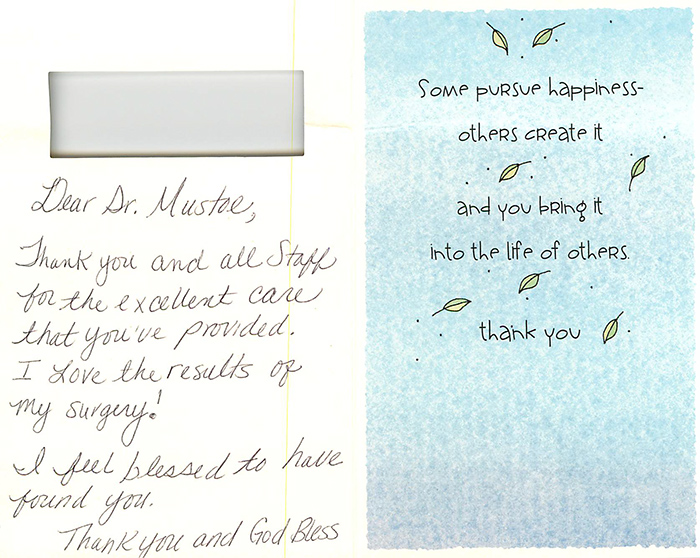 Dear Dr. Mustoe,
Thank you and all Staff
for the excellent care
that you've provided.
I Love the results of
my surgery!
I feel blessed to have
found you.
Thank you and God Bless
Some pursue happiness-
others create it
and you bring it
into the life of others.
thank you